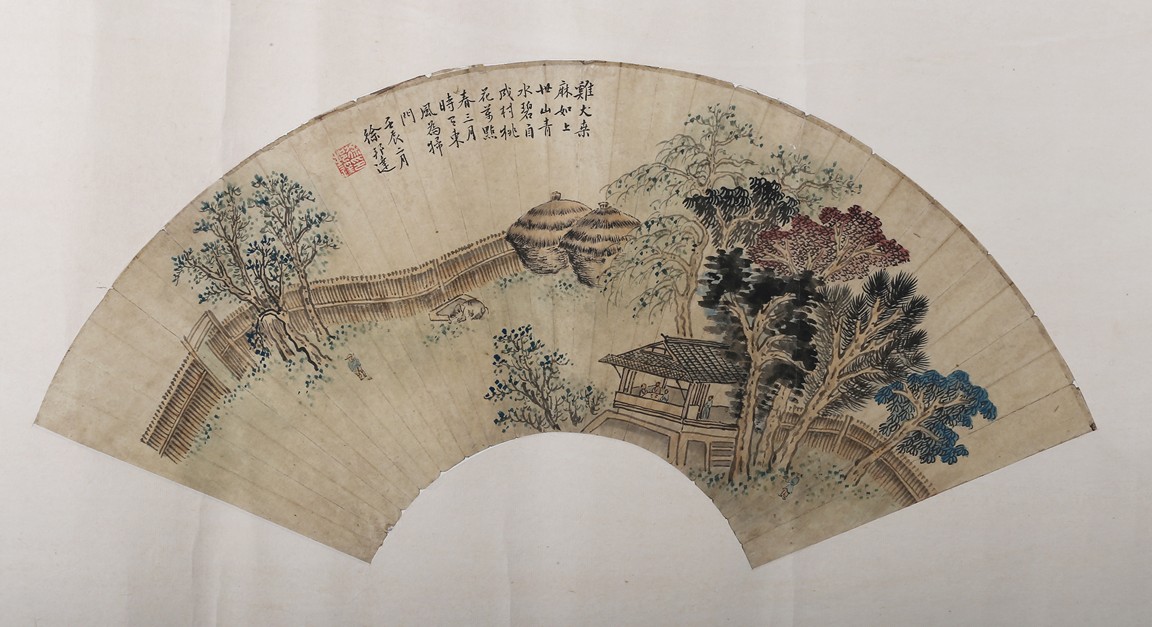 雞犬桒
麻如上
世山青
水碧自
成村桃
花萬點
春三月
時〻東
風為掃
門
壬辰二月
徐邦達